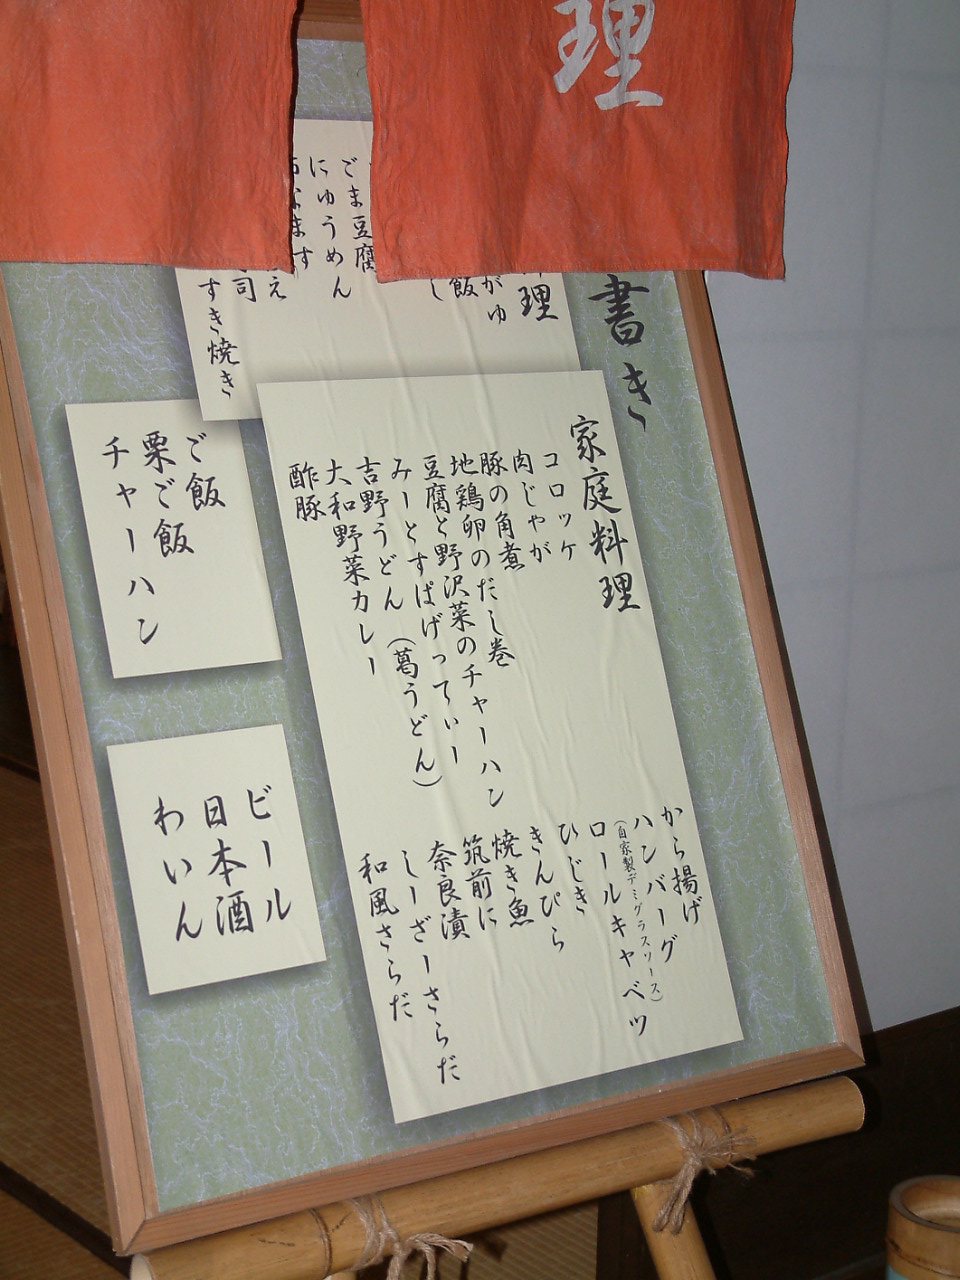 理
書き
理
がゆ
飯
し
ごま豆腐
にゅうめん
なます
え
司
すき焼き
家庭料理
コロッケ
肉じゃが
豚の角煮
地鶏卵のだし巻
豆腐と野沢菜のチャーハン
みーとすぱげってぃー
吉野うどん（葛うどん）
大和野菜カレー
酢豚
から揚げ
ハンバーグ
（自家製デミグラスソース）
ロールキャベツ
ひじき
きんぴら
焼き魚
筑前に
奈良漬
しーざーさらだ
和風さらだ
ご飯
栗ご飯
チャーハン
ビール
日本酒
わいん